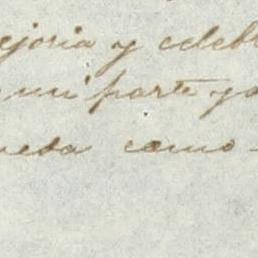 ejoria y celeb
mi parte yo
ueda como